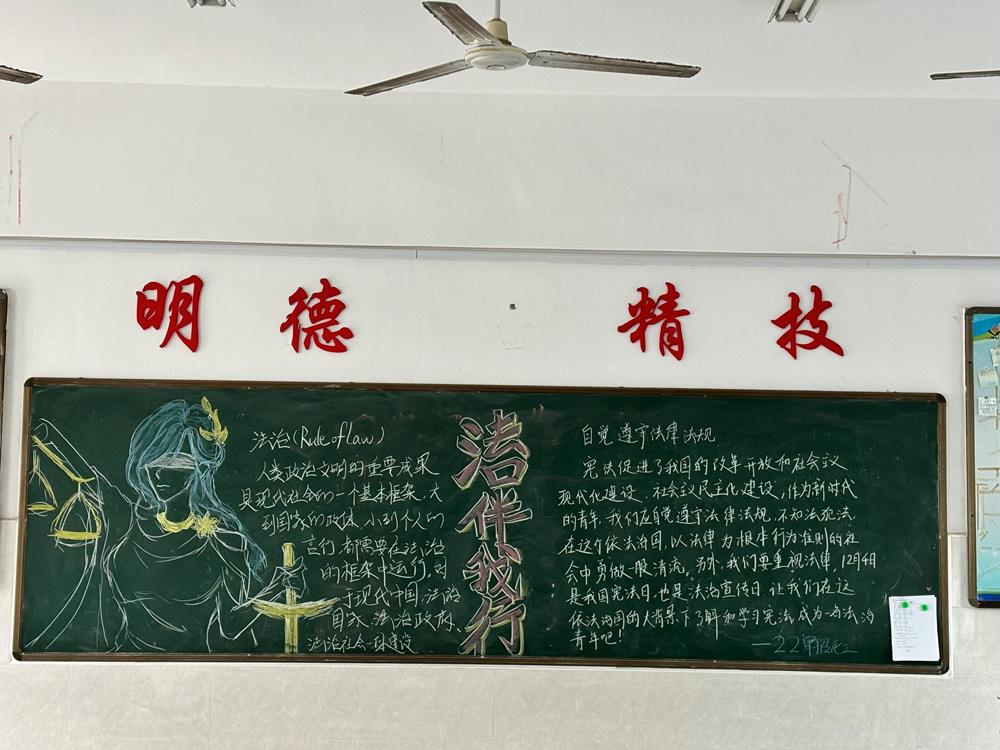 明德 精技
法治(Rule of law)
人类政治文明的重要成果
具现代社会的一个基本框架，大
到国家的政体，小到个人的
言行，都需要在法治
的框架中运行，对
于现代中国，法治
国家、法治政府、
法治社会一体建设
法伴我行
自觉遵守法律法规
宪法促进了我国的改革开放和社会主义
现代化建设，社会主义民主化建设，作为新时代
的青年，我们应自觉遵守法律法规，不知法犯法，
在这个依法治国，以法律为根本行为准则的社
会中勇做一股清流。另外，我们要重视法律，12月4日
是我国宪法日，也是法治宣传日，让我们在这
依法治国的大背景下了解和学习宪法，成为一名法治
青年吧！
—22